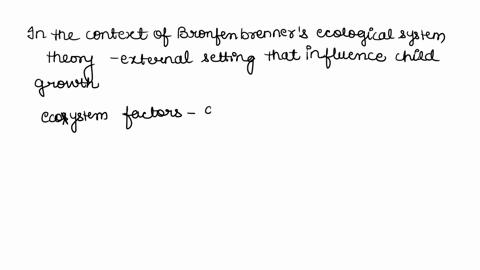 In the context of Bronfenbrenner's ecological system
theory - external setting that influence child
growth
ecosystem factors - c